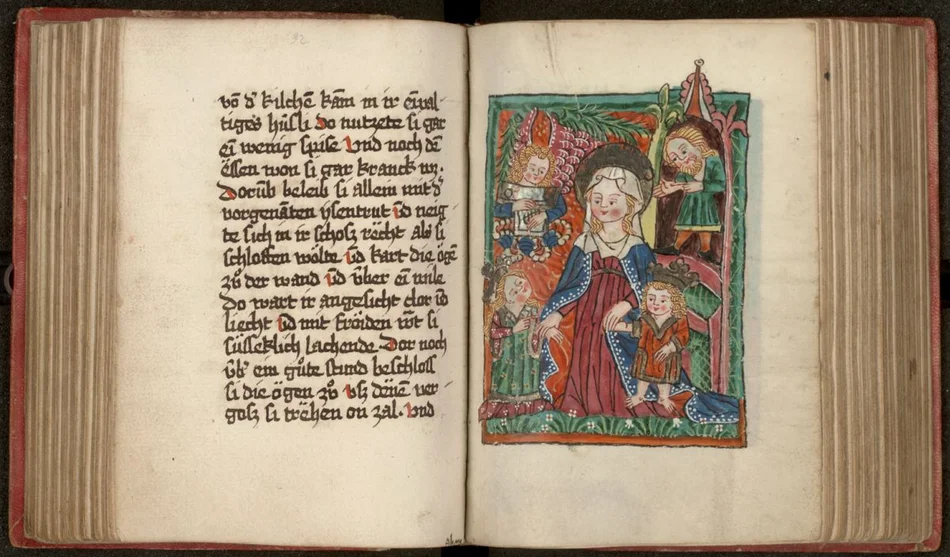 vō d' kilchē kam in ir eīual-
tiges hüsli Do nutzete si gar
eī wenig spise Vnd noch dē
essen won si gar kranck wz.
Dorūb beleib si allein mit d'
vorgenāten ysentrut vd neig
te sich in ir schosz recht als si
schloffen wölte vd kart die ögē
zů der wand vd vber eī wile
do wart ir angesicht clor vd
liecht vd mit fröiden wt si
süsseklich lachende Dor noch
vb' ein gůte stund beschloss
si die ögen zů vsz denē ver-
gosz si trëhen on zal. Vnd